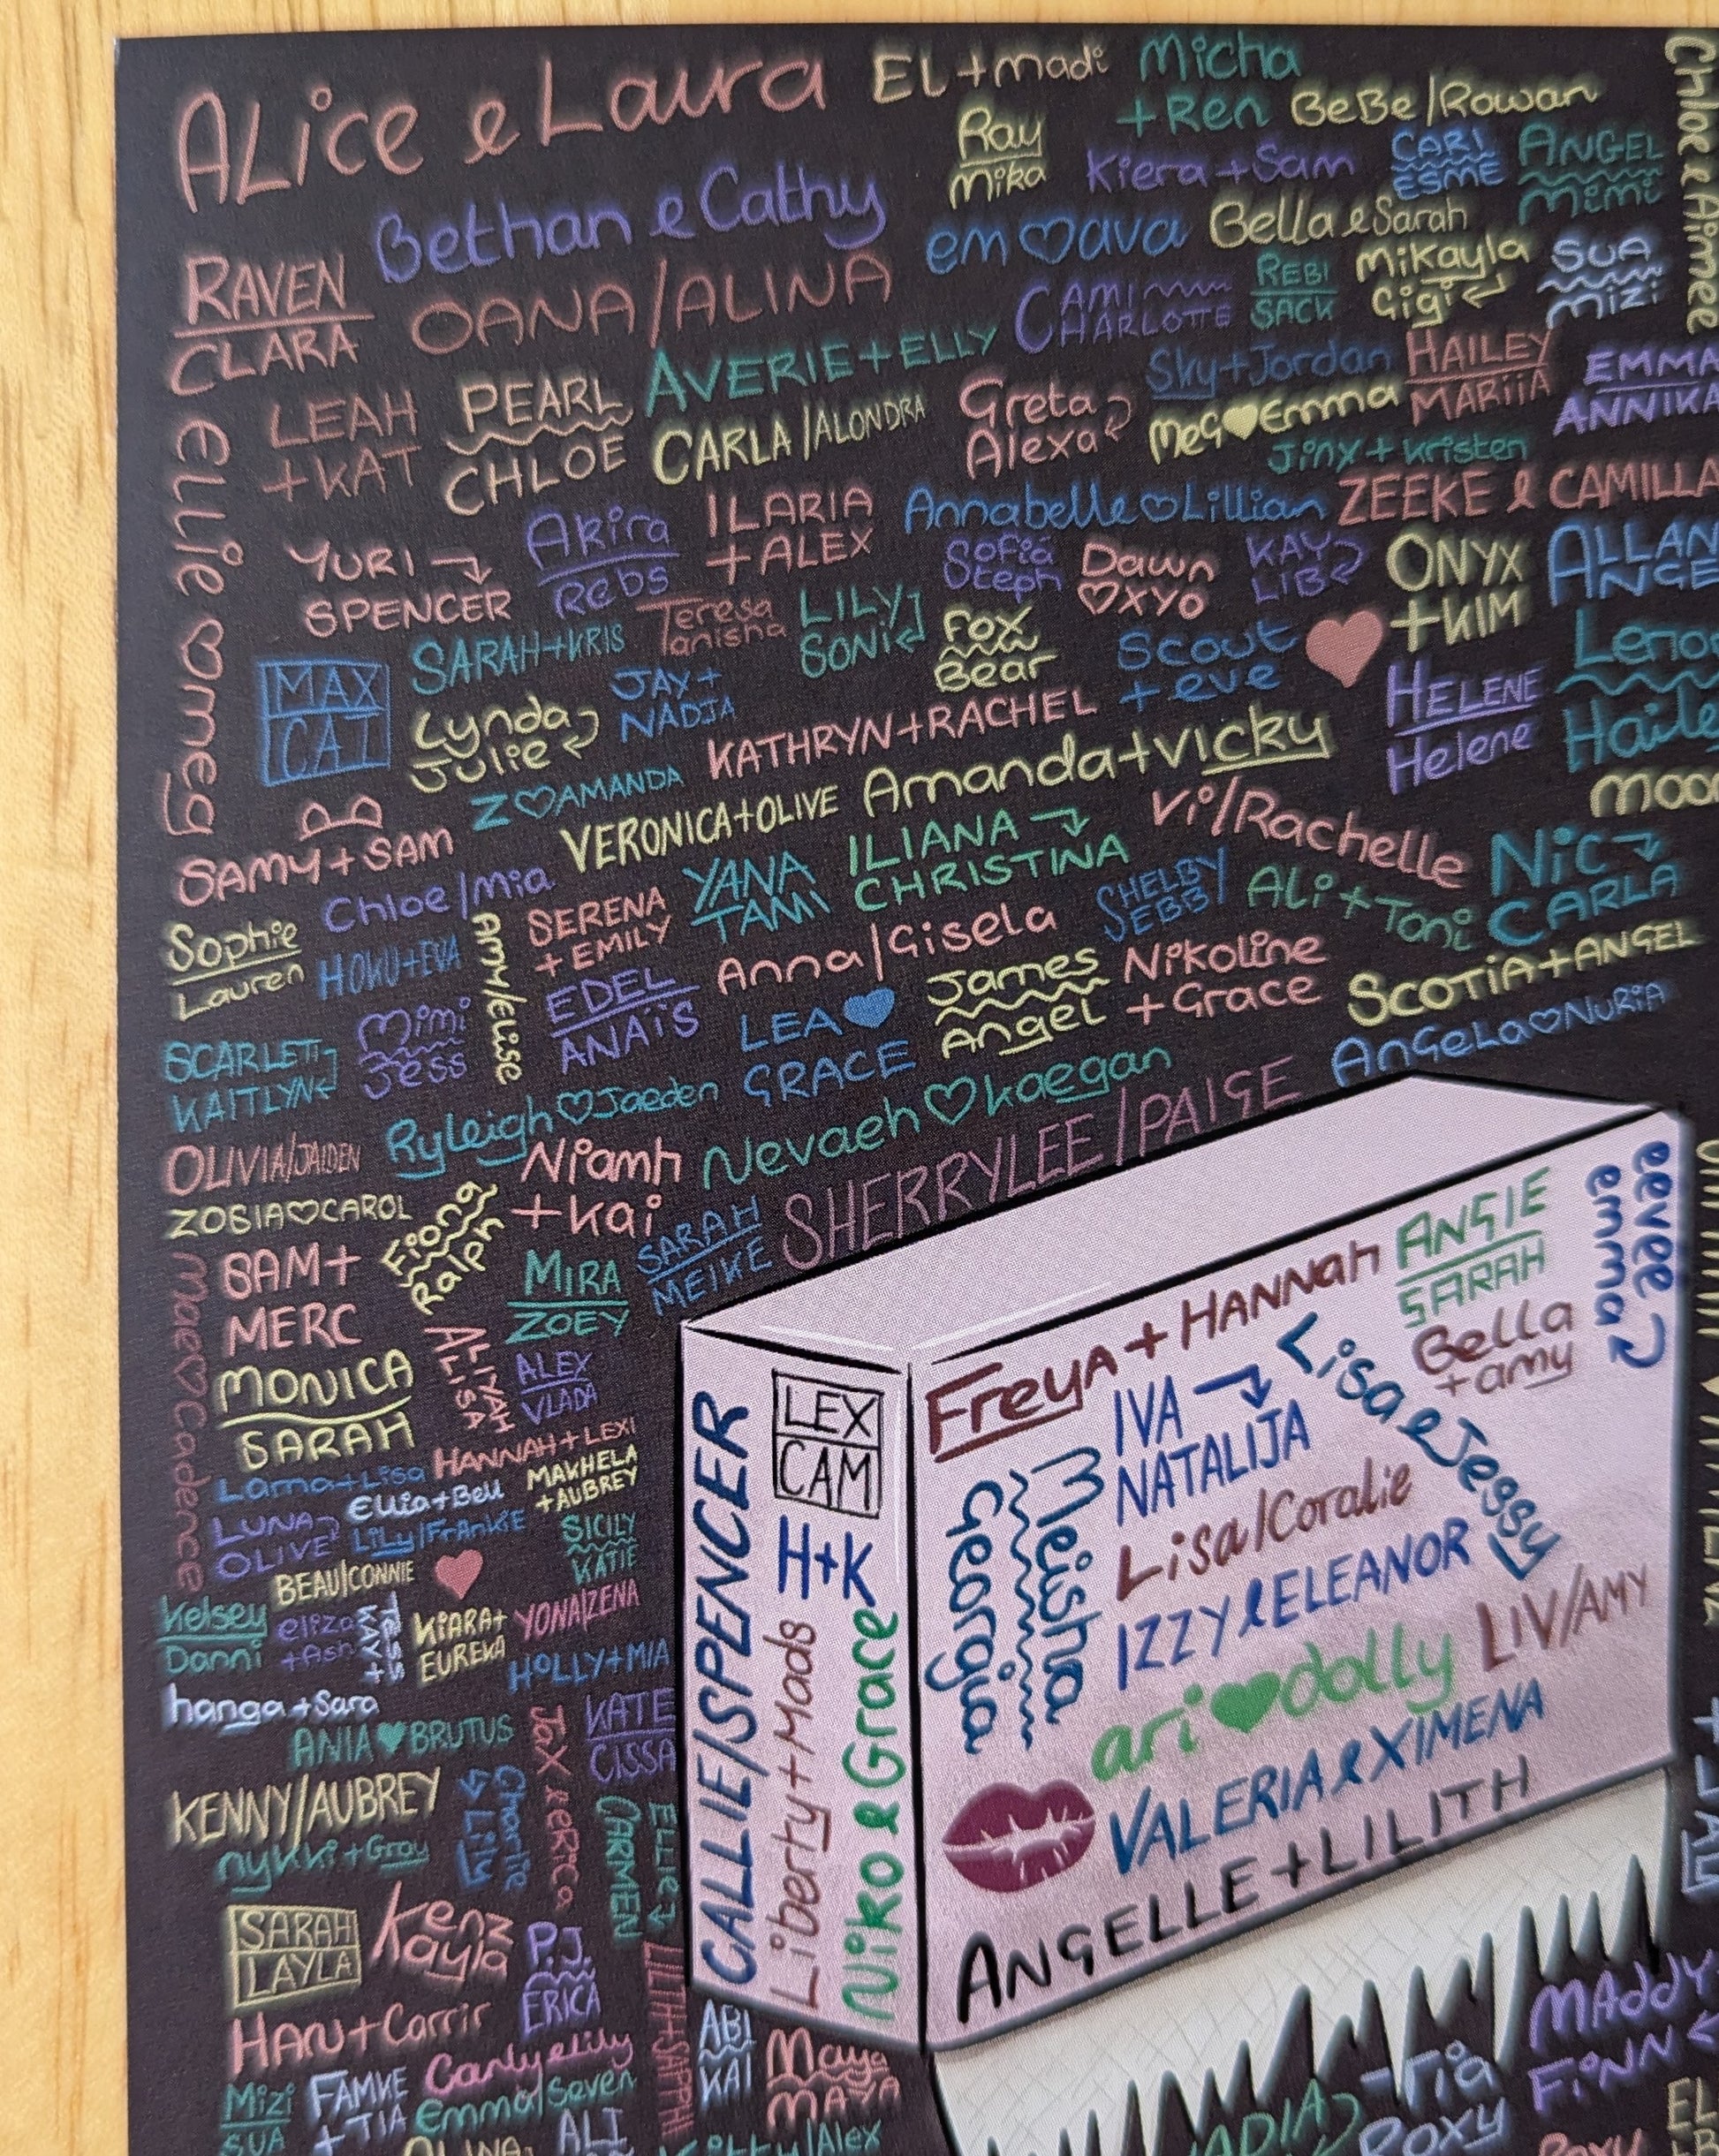 ALice & Laura
EL + madi
Micha
+ Ren
BeBe/Rowan
Chloe & Aimee
Ray
Mika
Kiera + Sam
CARL
ESME
ANGEL
Mimi
Bethan & Cathy
em ♡ ava
Bella & Sarah
RAVEN
CLARA
OANA/ALINA
CAMI
CHARLOTTE
REBI
SACK
Mikayla
Gigi
SUA
Mizi
LEAH
+ KAT
PEARL
CHLOE
AVERIE + ELLY
CARLA/ALONDRA
Greta
Alexa
Sky + Jordan
MeG ♥ Emma
HAILEY
MARiiA
EMMA
ANNIKA
Jinx + Kristen
ELLie ♡ omeg
YURI →
SPENCER
Akira
Rebs
ILARIA
+ ALEX
Annabelle ♡ Lillian
ZEEKE & CAMILLA
Sofia
Steph
Dawn
♡ XYO
KAY
LIB
ONYX
+ KIM
ALLAN
MAX
CAT
SARAH + KRIS
Teresa
Tanisha
LILY
SONi
FOX
Bear
Scout
+ eve
HELENE
Helene
Lynda
Julie
JAY +
NADJA
KATHRYN + RACHEL
Z ♡ AMANDA
VERONICA + OLIVE
Amanda + Vicky
SAMY + SAM
Chloe/Mia
ILIANA →
CHRISTINA
Vi/Rachelle
NiC →
CARLA
Sophie
Lauren
HOKU + EVA
AMY/ELISE
SERENA
+ EMILY
YANA
TAMI
Anna/Gisela
SHELBY
SEBBY
ALi + Toni
Mimi
Jess
EDEL
ANAïS
LEA ♥
GRACE
James
Angel
Nikoline
+ Grace
SCOTiA + ANGEL
AnGeLa ♡ NuRiA
SCARLETT
KAITLYN
Ryleigh ♡ Jaeden
Nevaeh ♡ kaegan
OLIVIA/JAIDEN
Niamh
+ Kai
SHERRYLEE/PAIGE
ZOSIA ♡ CAROL
Fiona
Ralph
SARAH
MEIKE
SAM +
MERC
MIRA
ZOEY
maev Cadence
MONICA
SARAH
ALIYAH
ALISA
ALEX
VLADA
HANNAH + LEXI
Lama + Lisa
MAKHELA
+ AUBREY
ELLia + Bell
LUNA
OLIVE
LiLy/FrAnKiE
SICILY
KATIE
BEAU/CONNIE
Kelsey
Danni
eliza
+ Ash
KAY +
TESS
KiARA +
EUREKA
YONA/ZENA
HOLLY + MIA
hanga + Sara
ANIA ♥ BRUTUS
JaX & eRiCa
KATE
CISSA
KENNY/AUBREY
Charlie
& Lily
ELLIE →
CARMEN
nykki + Gray
SARAH
LAYLA
Kenz
Kayla
P.J.
ERICA
LILITH + SAPPHI
HAN + Carrir
Carly & Lily
Mizi
SUA
FAMKE
+ TIA
Emma/Seven
ALI
ABI
KAI
Maya
MAYA
CALLIE/SPENCER
LEX
CAM
H + K
Liberty + Mads
Niko & Grace
Freya + HANNah
ANGIE
SARAH
eevee
emma
Bella
+ amy
IVA →
NATALIJA
Lisa & Jessy
Meisha
Georgia
Lisa/Coralie
IZZY & ELEANOR
ari ♥ dolly
LIV/AMY
VALERIA & XIMENA
ANGELLE + LILITH
MAddY
FiNN
Roxy